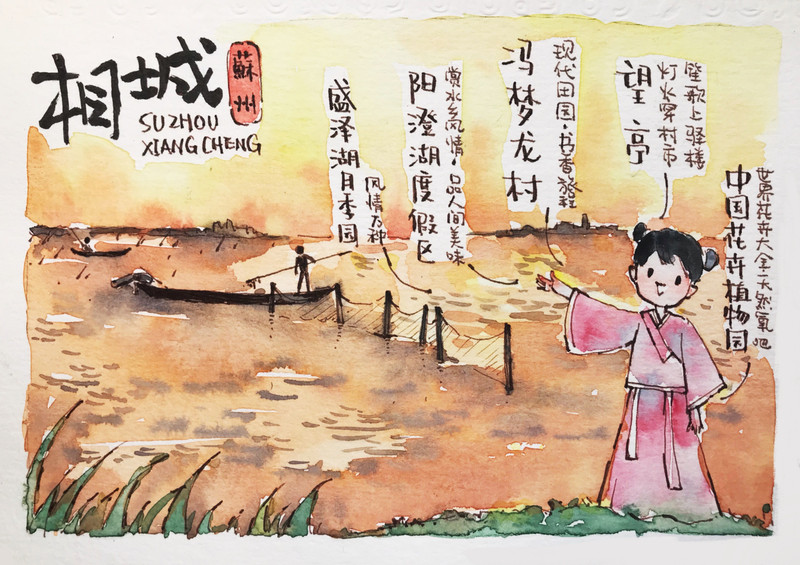 相城
蘇州
SUZHOU
XIANGCHENG
盛泽湖月季园
风情万种
阳澄湖度假区
赏水乡风情·品人间美味
冯梦龙村
现代田园·书香旅程
望亭
笙歌上驿楼
灯火穿村市
中国花卉植物园
世界花卉大全·天然氧吧